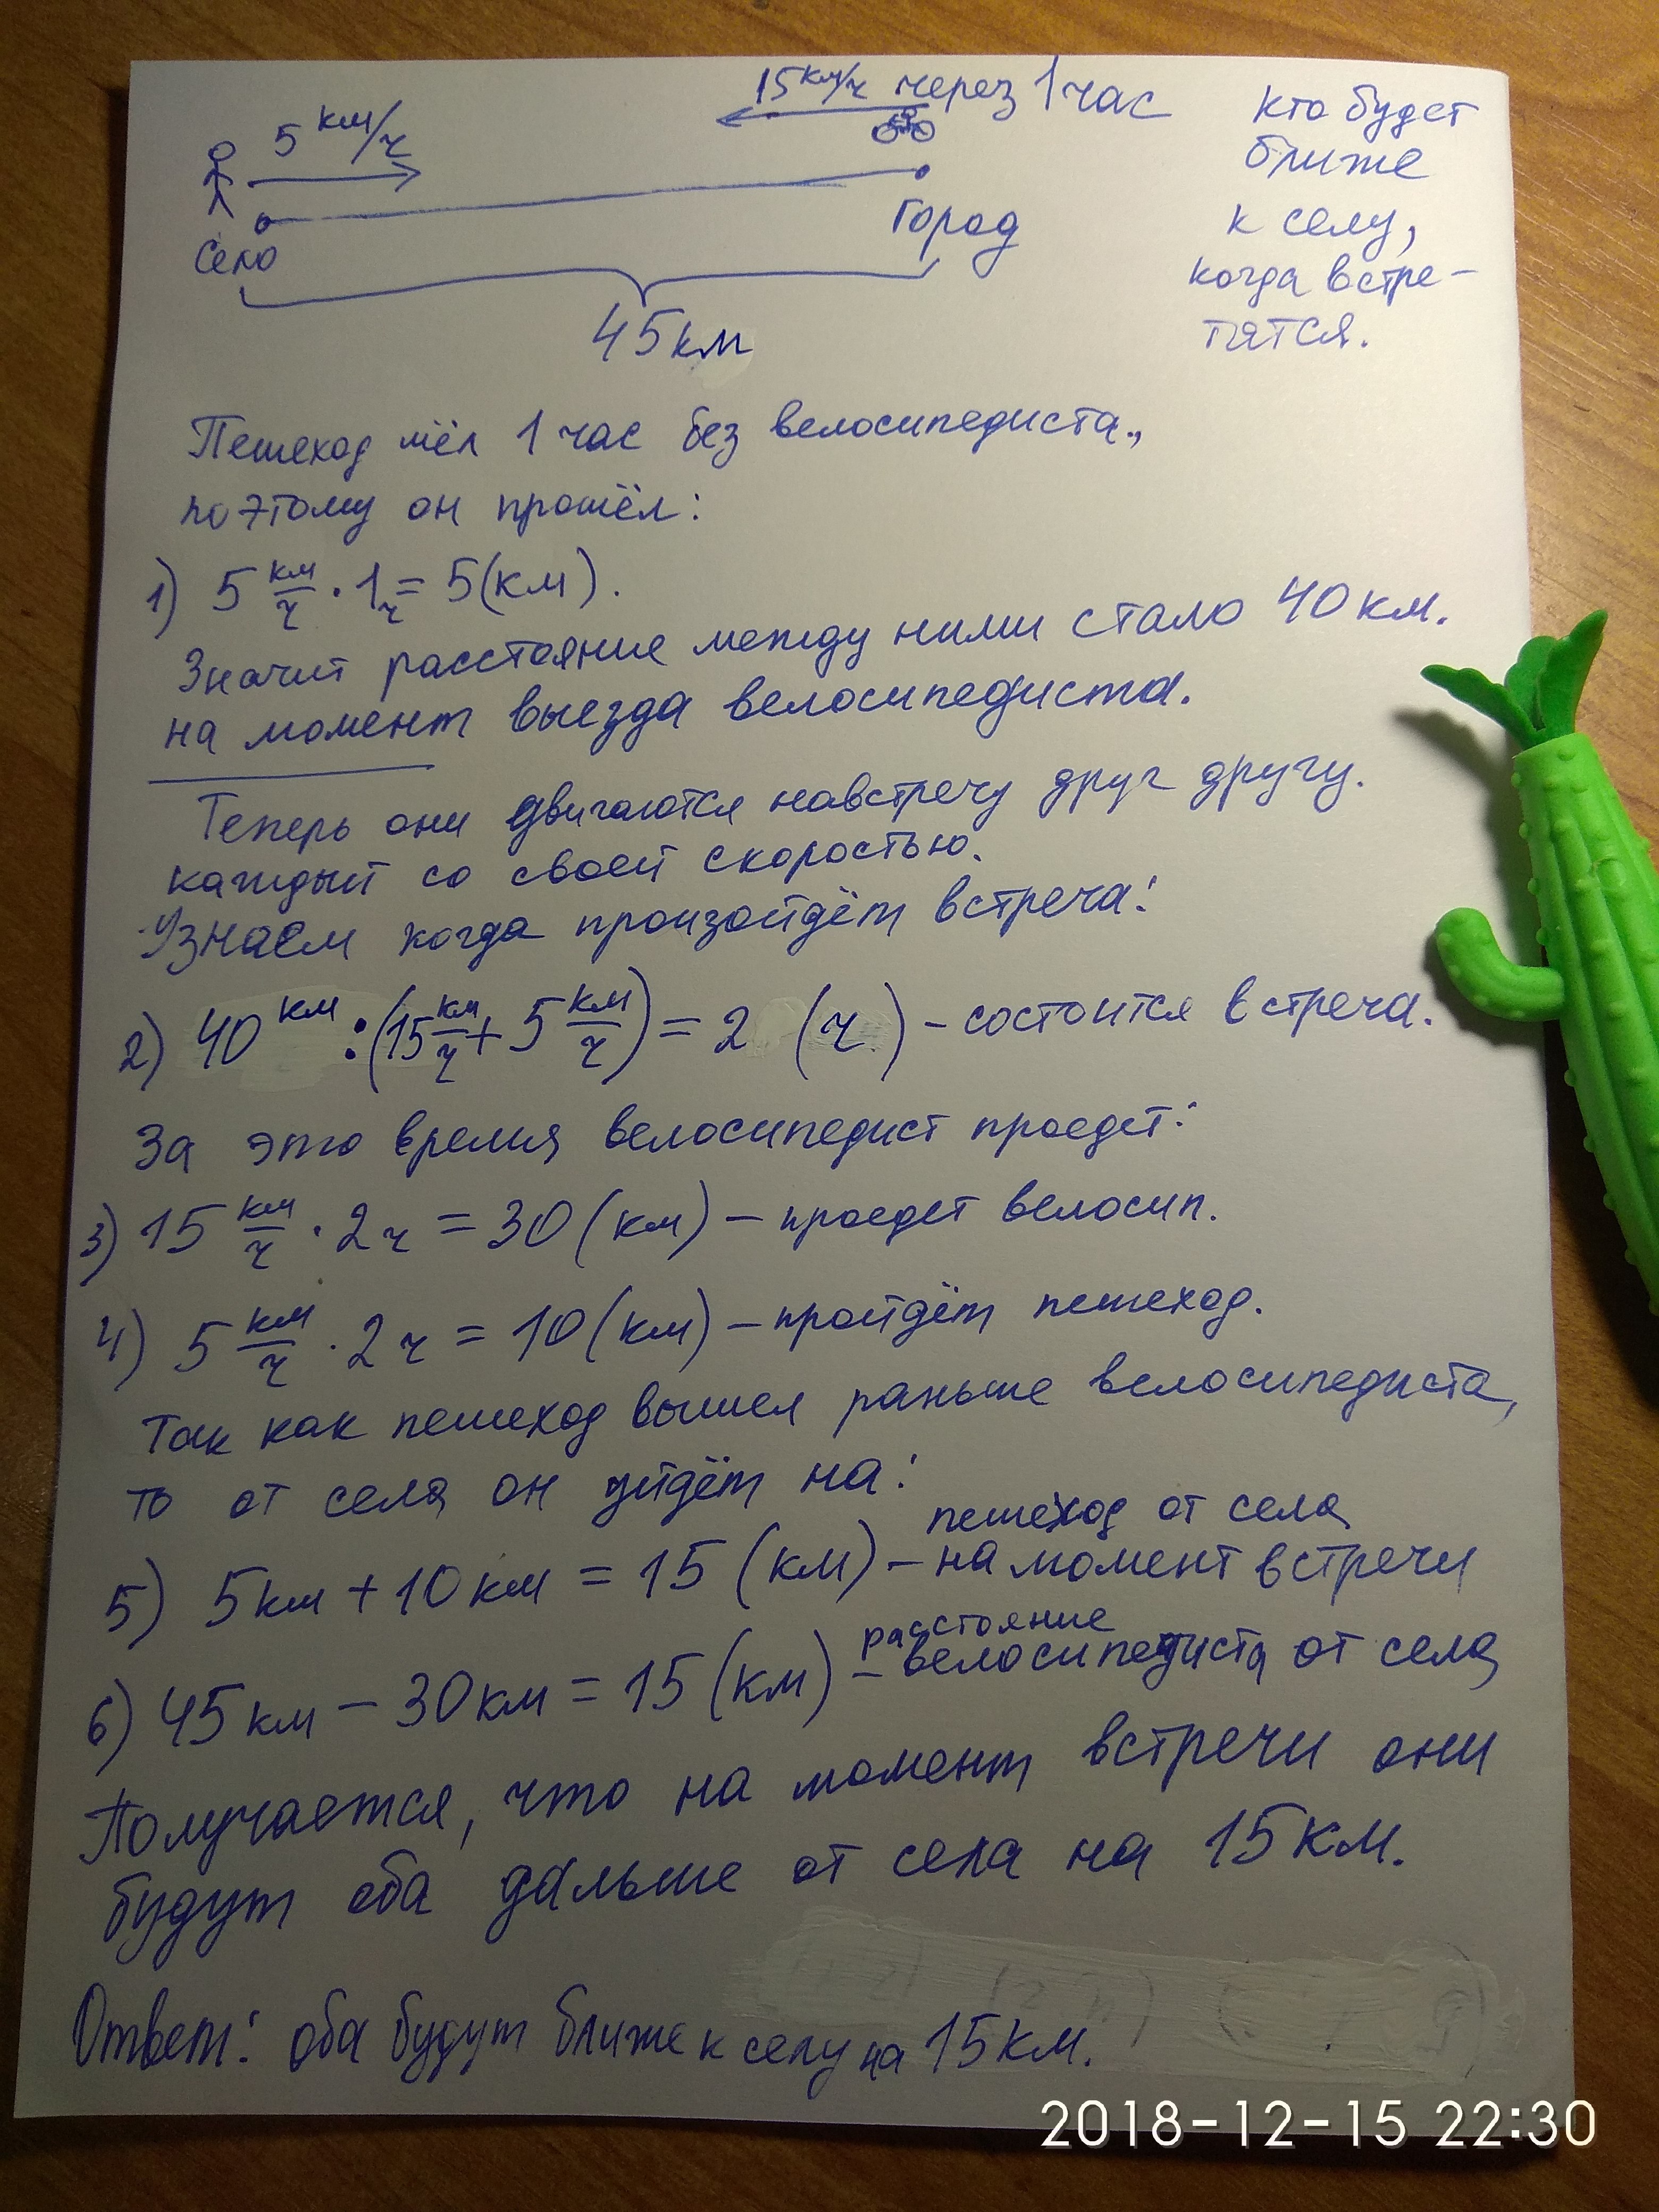 5 км/ч
15 км/ч через 1 час
Село
Город
45 км
Кто будет
ближе
к селу,
когда встре-
тятся.
Пешеход шёл 1 час без велосипедиста,
поэтому он прошёл:
1) 5 км/ч · 1ч = 5 (км).
Значит расстояние между ними стало 40 км.
на момент выезда велосипедиста.
Теперь они двигаются навстречу друг другу.
каждый со своей скоростью.
Узнаем когда произойдёт встреча:
2) 40 км : (15 км/ч + 5 км/ч) = 2 (ч.) – состоится встреча.
За это время велосипедист проедет:
3) 15 км/ч · 2ч = 30 (км) – проедет велосип.
4) 5 км/ч · 2ч = 10 (км) – пройдёт пешеход.
Так как пешеход вышел раньше велосипедиста,
то от села он уйдёт на:
5) 5 км + 10 км = 15 (км) – пешеход от села
на момент встречи
6) 45 км – 30 км = 15 (км) – расстояние
велосипедиста от села
Получается, что на момент встречи они
будут оба дальше от села на 15 км.
Ответ: оба будут ближе к селу на 15 км.
2018-12-15 22:30